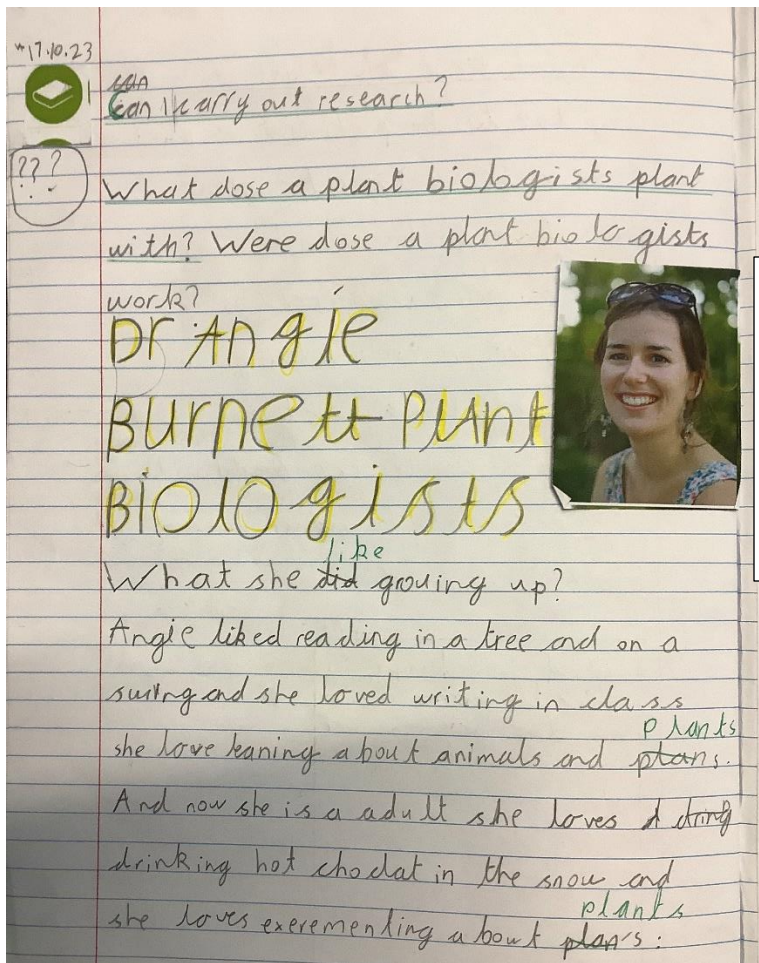 17.10.23
can
Can I carry out research?
?? ?
What dose a plant biologists plant
with? Were dose a plant biologists
work?
Dr Angie
Burnett Plant
Biologists
like
What she did grouing up?
Angie liked reading in a tree and on a
swing and she loved writing in class
plants
she love leaning about animals and plans.
And now she is a adult she loves d dring
drinking hot choclat in the snow and
plants
she loves exerementing about plan's.